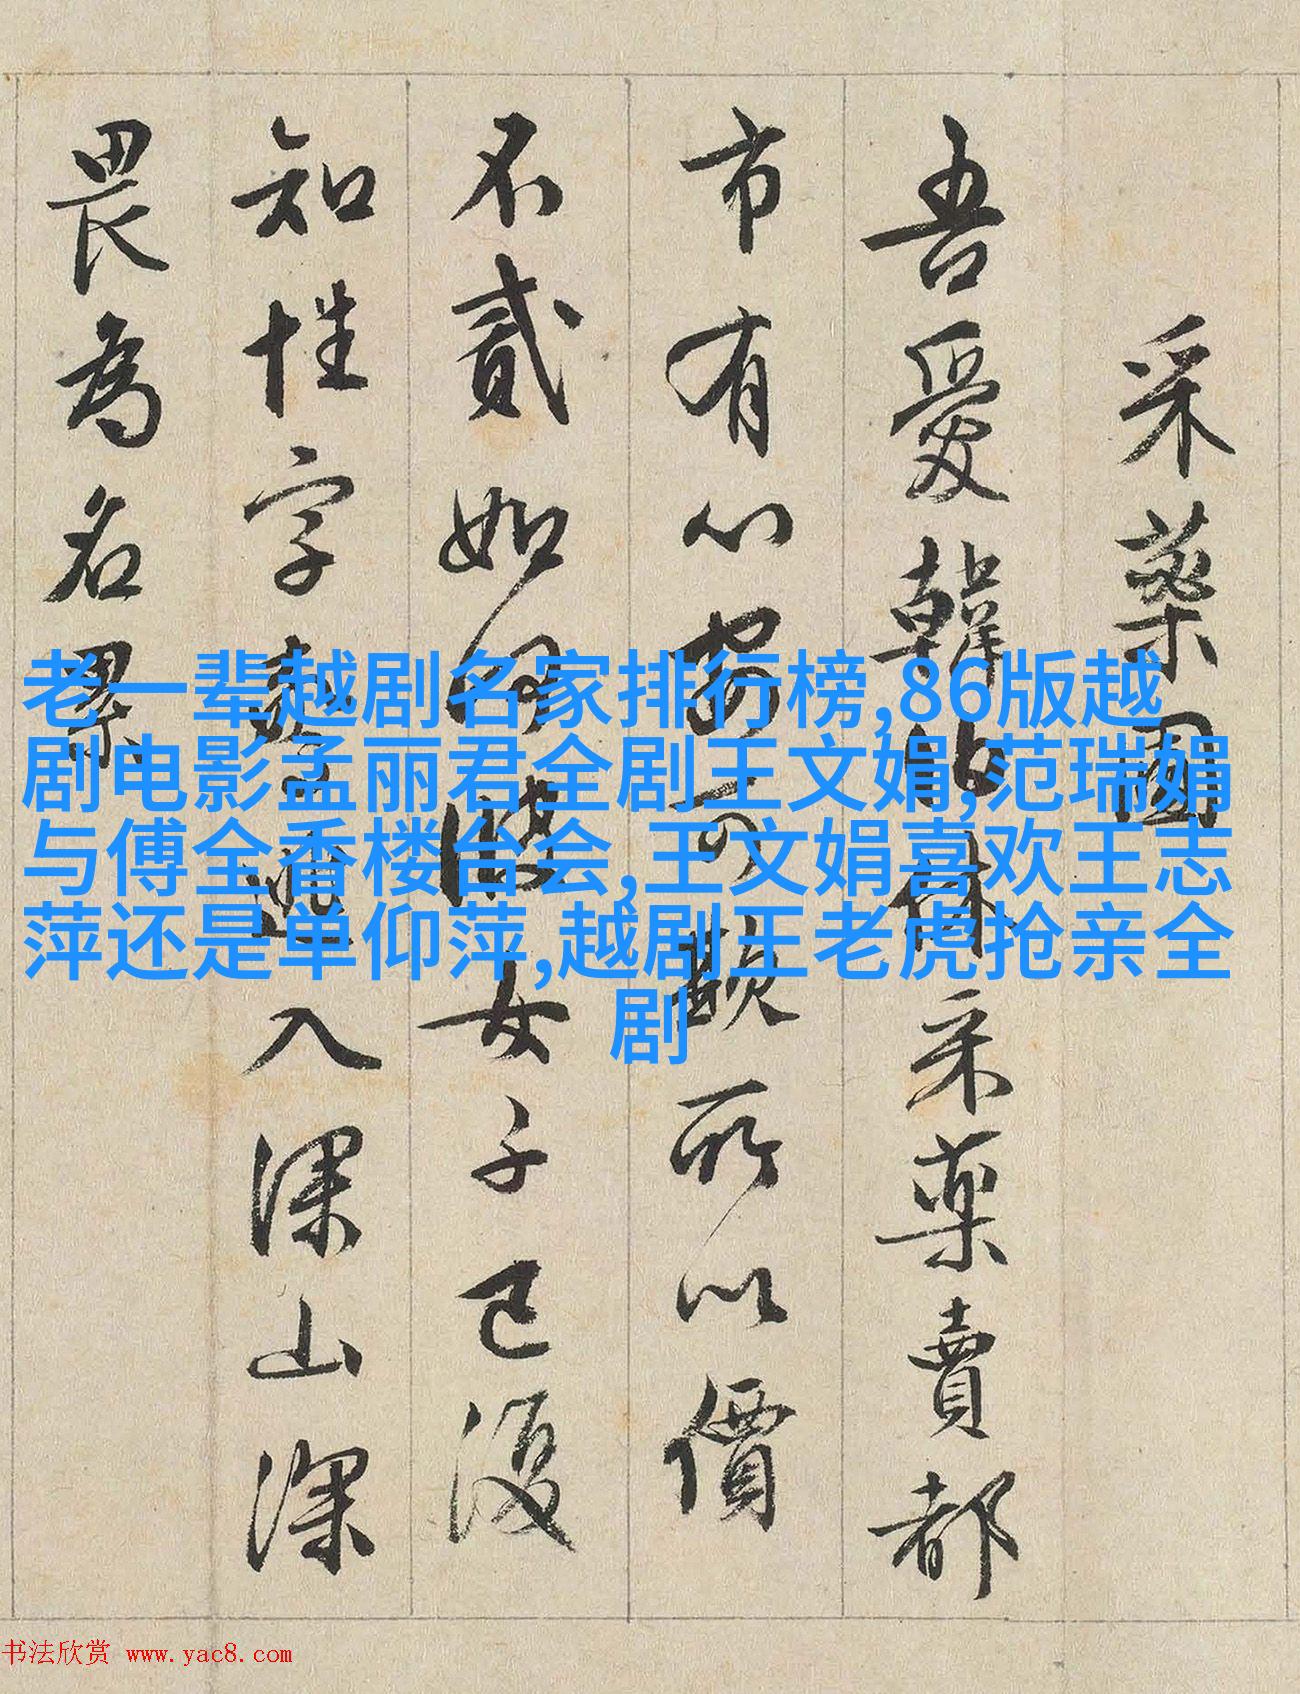 采藥圃
吾愛韓伯休采藥賣都
市有心安可欺所以價
不貳如何彼女子已復
知姓字驚逃入深山深
畏為名累
老一辈越剧名家排行榜,86版越
剧电影孟丽君全剧王文娟,范瑞娟
与傅全香楼台会,王文娟喜欢王志
萍还是单仰萍,越剧王老虎抢亲全
剧
书法欣赏 www.yac8.com